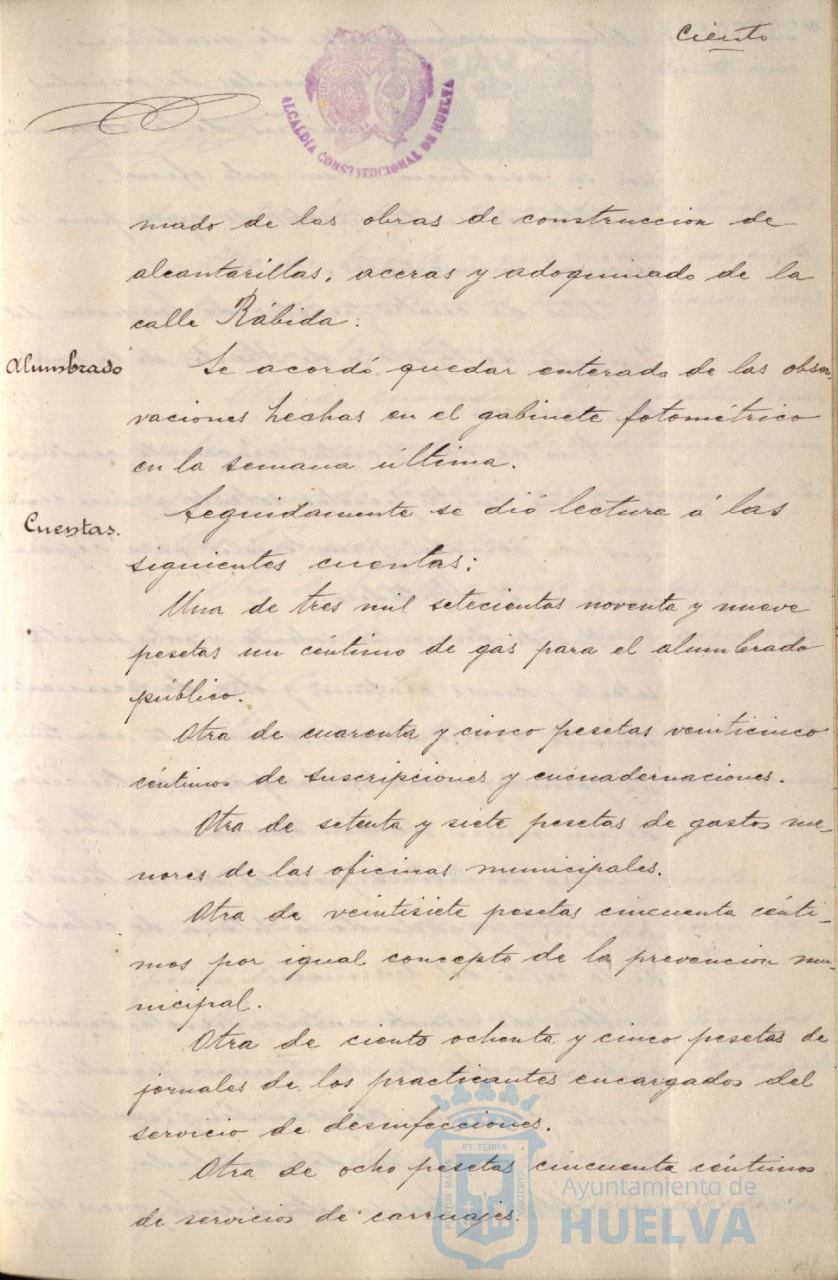 Ciento
ALCALDIA CONSTITUCIONAL DE HUELVA
mado de las obras de construccion de
alcantarillas, aceras y adoquinado de la
calle Rábida.
Alumbrado
Se acordó quedar enterado de las obser-
vaciones hechas en el gabinete fotométrico
en la semana última.
Cuentas.
Seguidamente se dió lectura á las
siguientes cuentas:
Una de tres mil setecientas noventa y nueve
pesetas un céntimo de gas para el alumbrado
público.
Otra de cuarenta y cinco pesetas veinticinco
céntimos de suscripciones y encuadernaciones.
Otra de setenta y siete pesetas de gastos me-
nores de las oficinas municipales.
Otra de veintisiete pesetas cincuenta cénti-
mos por igual concepto de la prevencion mu-
nicipal.
Otra de ciento ochenta y cinco pesetas de
jornales de los practicantes encargados del
servicio de desinfecciones.
Otra de ocho pesetas cincuenta céntimos
de servicios de carruajes.
PORTUS MARIS ET TERRÆ CUSTODIA
Ayuntamiento de
HUELVA